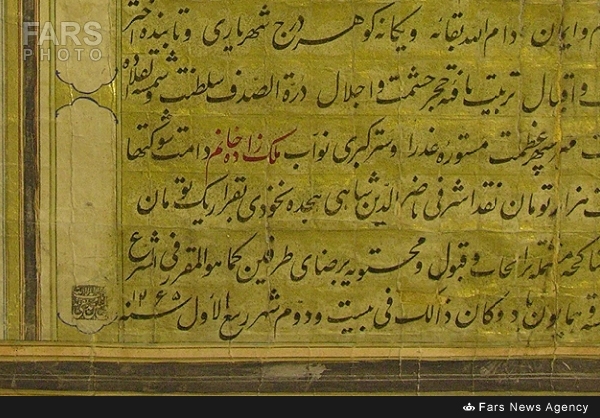 FARS
PHOTO
م و ایران دام الله بقائه و یگانه گوهر درج شهریاری و تابنده اختر
و اقبال تربیت یافته حجر حشمت و اجلال درة الصدف سلطنت و شمسه
مهر سپهر عظمت مستوره عذرا و ستر کبری نواب ملک زاده خانم دامت شوکتها
هزار تومان نقد اشرفی ناصرالدین شاهی هجده نخودی بقرار یک تومان
بر ایجاب و قبول و محتویه برضای طرفین کما هو المقرر فی الشرع
همایون باد و کان ذالک فی بیست و دوم شهر ربیع الأول سنه ۱۲۶۵
Fars News Agency